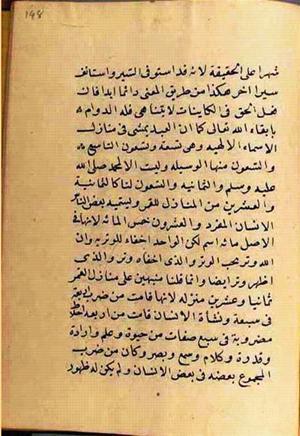 ١٤٨
شهرا على الحقيقة لانه قد استوفى السير واستانف
سيرا اخر هكذا من طريق المعنى دائما ابدا فان
فضل الحق فى الكاينات لا يتناهى فله الدوام
بابقاء الله تعالى كما ان العبد يمشى فى منازل
الاسماء الالهيه وهى تسعة وتسعون التاسع
والتسعون منها الوسيله وليست الا لمحمد صلى الله
عليه وسلم والثمانيه والتسعون لنا كالثمانية
والعشرين من المنازل للقمر ويسميه بعض الناس
الانسان المفرد والعشرون خمس المائه لانها فى
الاصل مائة اسم لكن الواحد اخفاء للوتريه فان
الله وتر يحب الوتر والذى اخفاه وتر والذى
اظهره وتر ايضا وانما قلنا منبهين على منازل القمر
ثمانيا وعشرين منزله لانها قامت من ضرب اربعة
فى سبعة ونشاة الانسان قامت من اربعة اخلاط
مضروبة فى سبع صفات من حيوة وعلم وارادة
وقدرة وكلام وسمع وبصر وكان من ضرب
المجموع بعضه فى بعض الانسان ولم يكن له ظهور